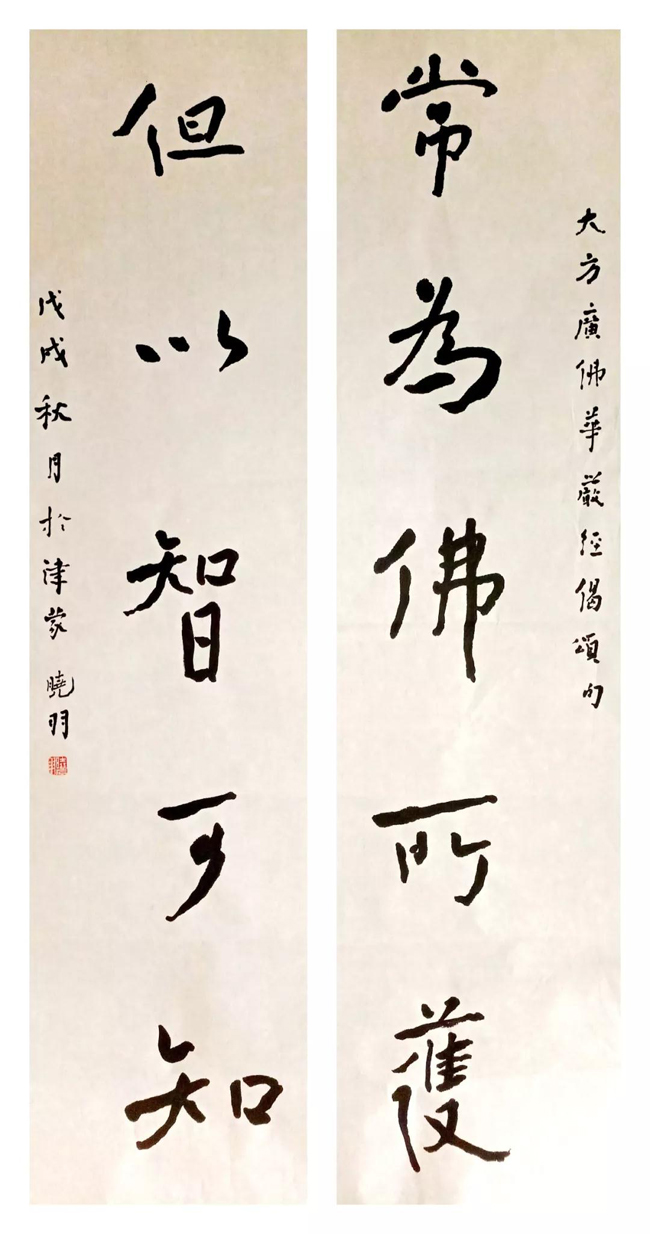 大方廣佛華嚴經偈頌句
常為佛所護
但以智可知
戊戌秋月於津蒙 曉明